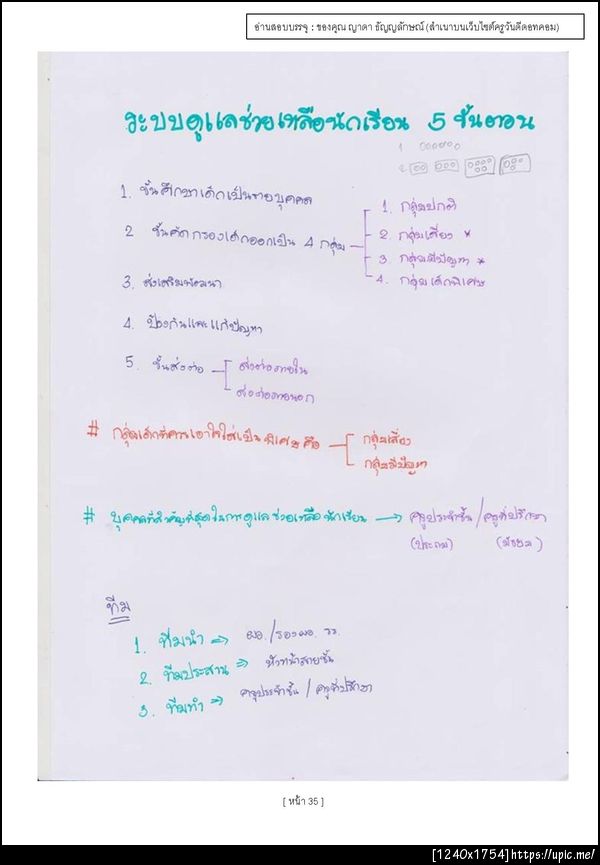 อ่านสอบบรรจุ : ของคุณ ญาดา ธัญญลักษณ์ (สำเนาบนเว็บไซต์ครูวันดีดอทคอม)
ระบบดูแลช่วยเหลือนักเรียน 5 ขั้นตอน
1. ขั้นศึกษาเด็กเป็นรายบุคคล
2 ขั้นคัดกรองเด็กออกเป็น 4 กลุ่ม
1. กลุ่มปกติ
2. กลุ่มเสี่ยง *
3 กลุ่มมีปัญหา *
4. กลุ่มเด็กพิเศษ
3. ส่งเสริมพัฒนา
4. ป้องกันและแก้ปัญหา
5. ขั้นส่งต่อ
ส่งต่อภายใน
ส่งต่อภายนอก
# กลุ่มเด็กที่ควรเอาใจใส่เป็นพิเศษ คือ
กลุ่มเสี่ยง
กลุ่มมีปัญหา
# บุคคลที่สำคัญที่สุดในการดูแลช่วยเหลือนักเรียน → ครูประจำชั้น / ครูที่ปรึกษา
(ประถม) (มัธยม)
ทีม
1. ทีมนำ ⇒ ผอ. / รองผอ. รร.
2. ทีมประสาน ⇒ หัวหน้าสายชั้น
3. ทีมทำ ⇒ ครูประจำชั้น / ครูที่ปรึกษา
[ หน้า 35 ]
[1240x1754]https://upic.me/